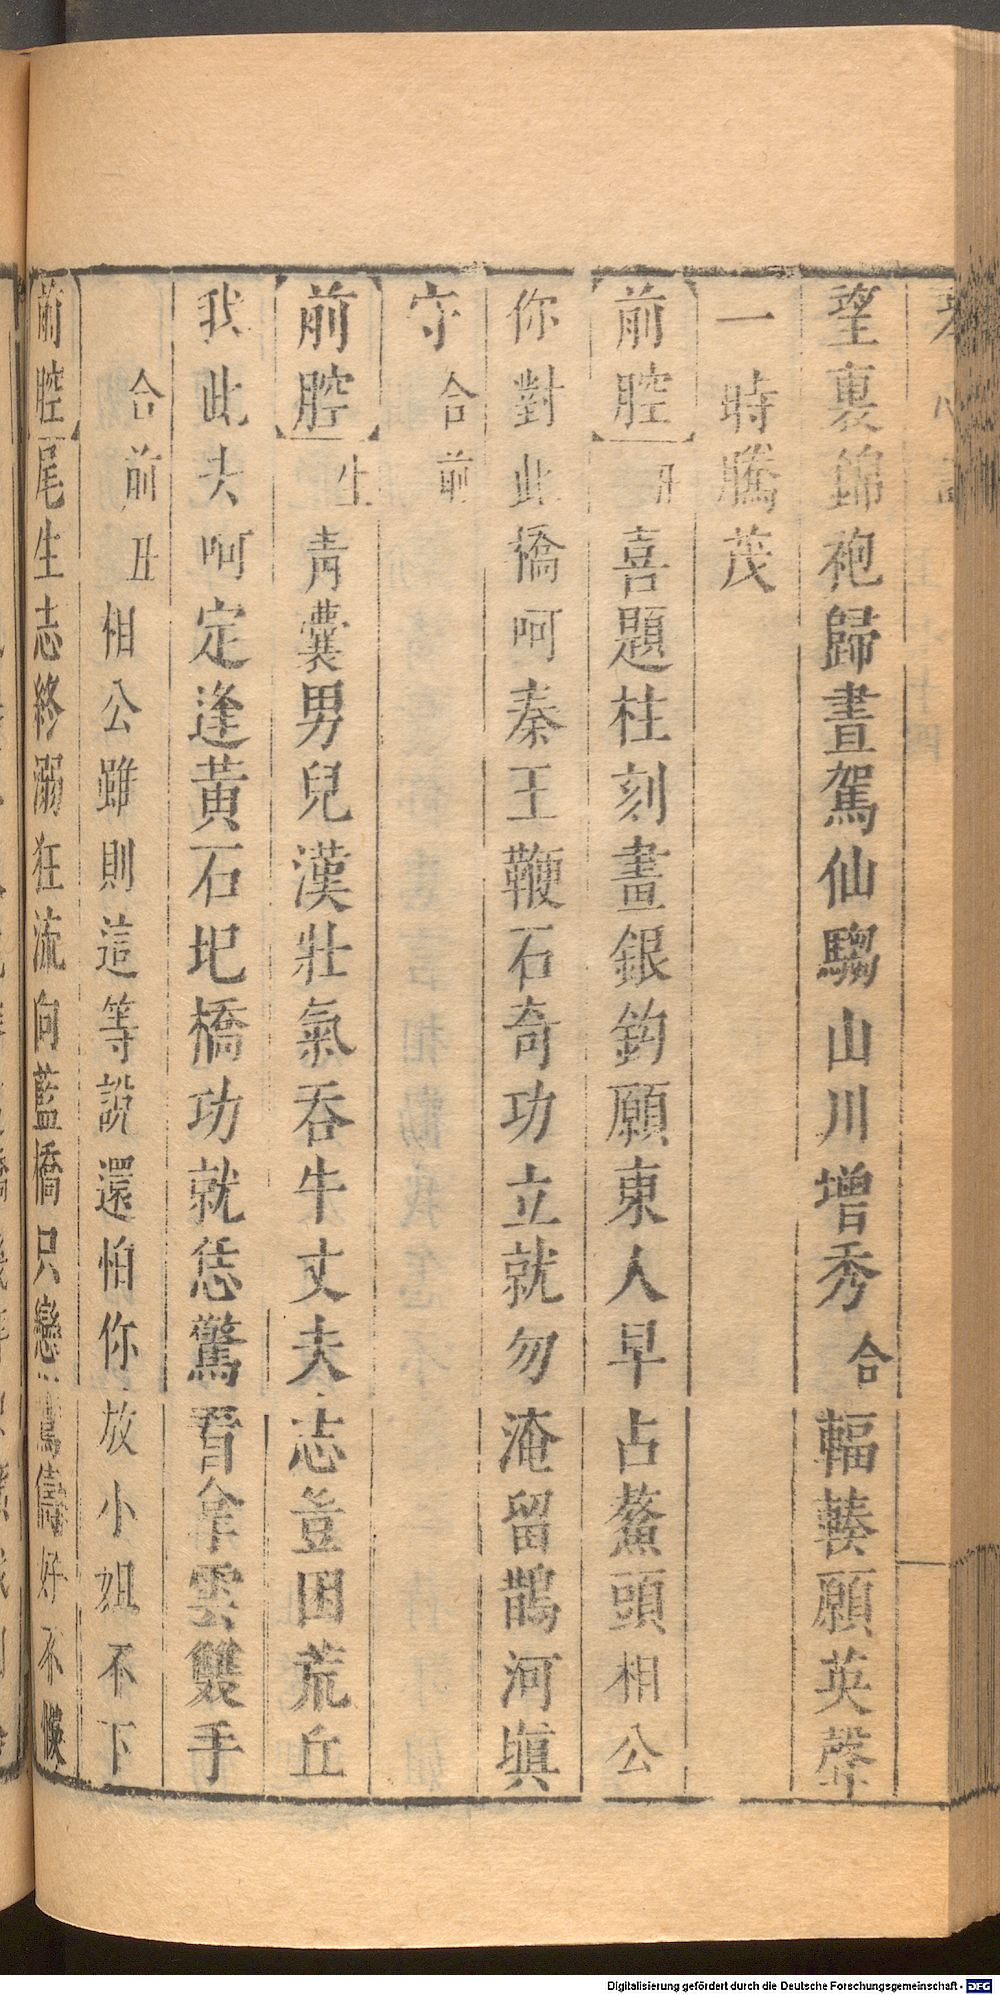 望裏錦袍歸晝駕仙騶山川增秀合輻輳願英聲
一時騰茂
前腔丑喜題柱刻畫銀鈎願東人早占鰲頭相公
你對此橋呵秦王鞭石奇功立就勿淹留鵲河塡
守合前
前腔生靑囊男兒漢壯氣吞牛丈夫志豈困荒丘
我此去呵定逢黃石圯橋功就恁驚看拿雲雙手
合前丑相公雖則這等說還怕你放小姐不下
前腔尾生志終溺狂流向藍橋只戀鸞儔好不慔
Digitalisierung gefördert durch die Deutsche Forschungsgemeinschaft - DFG